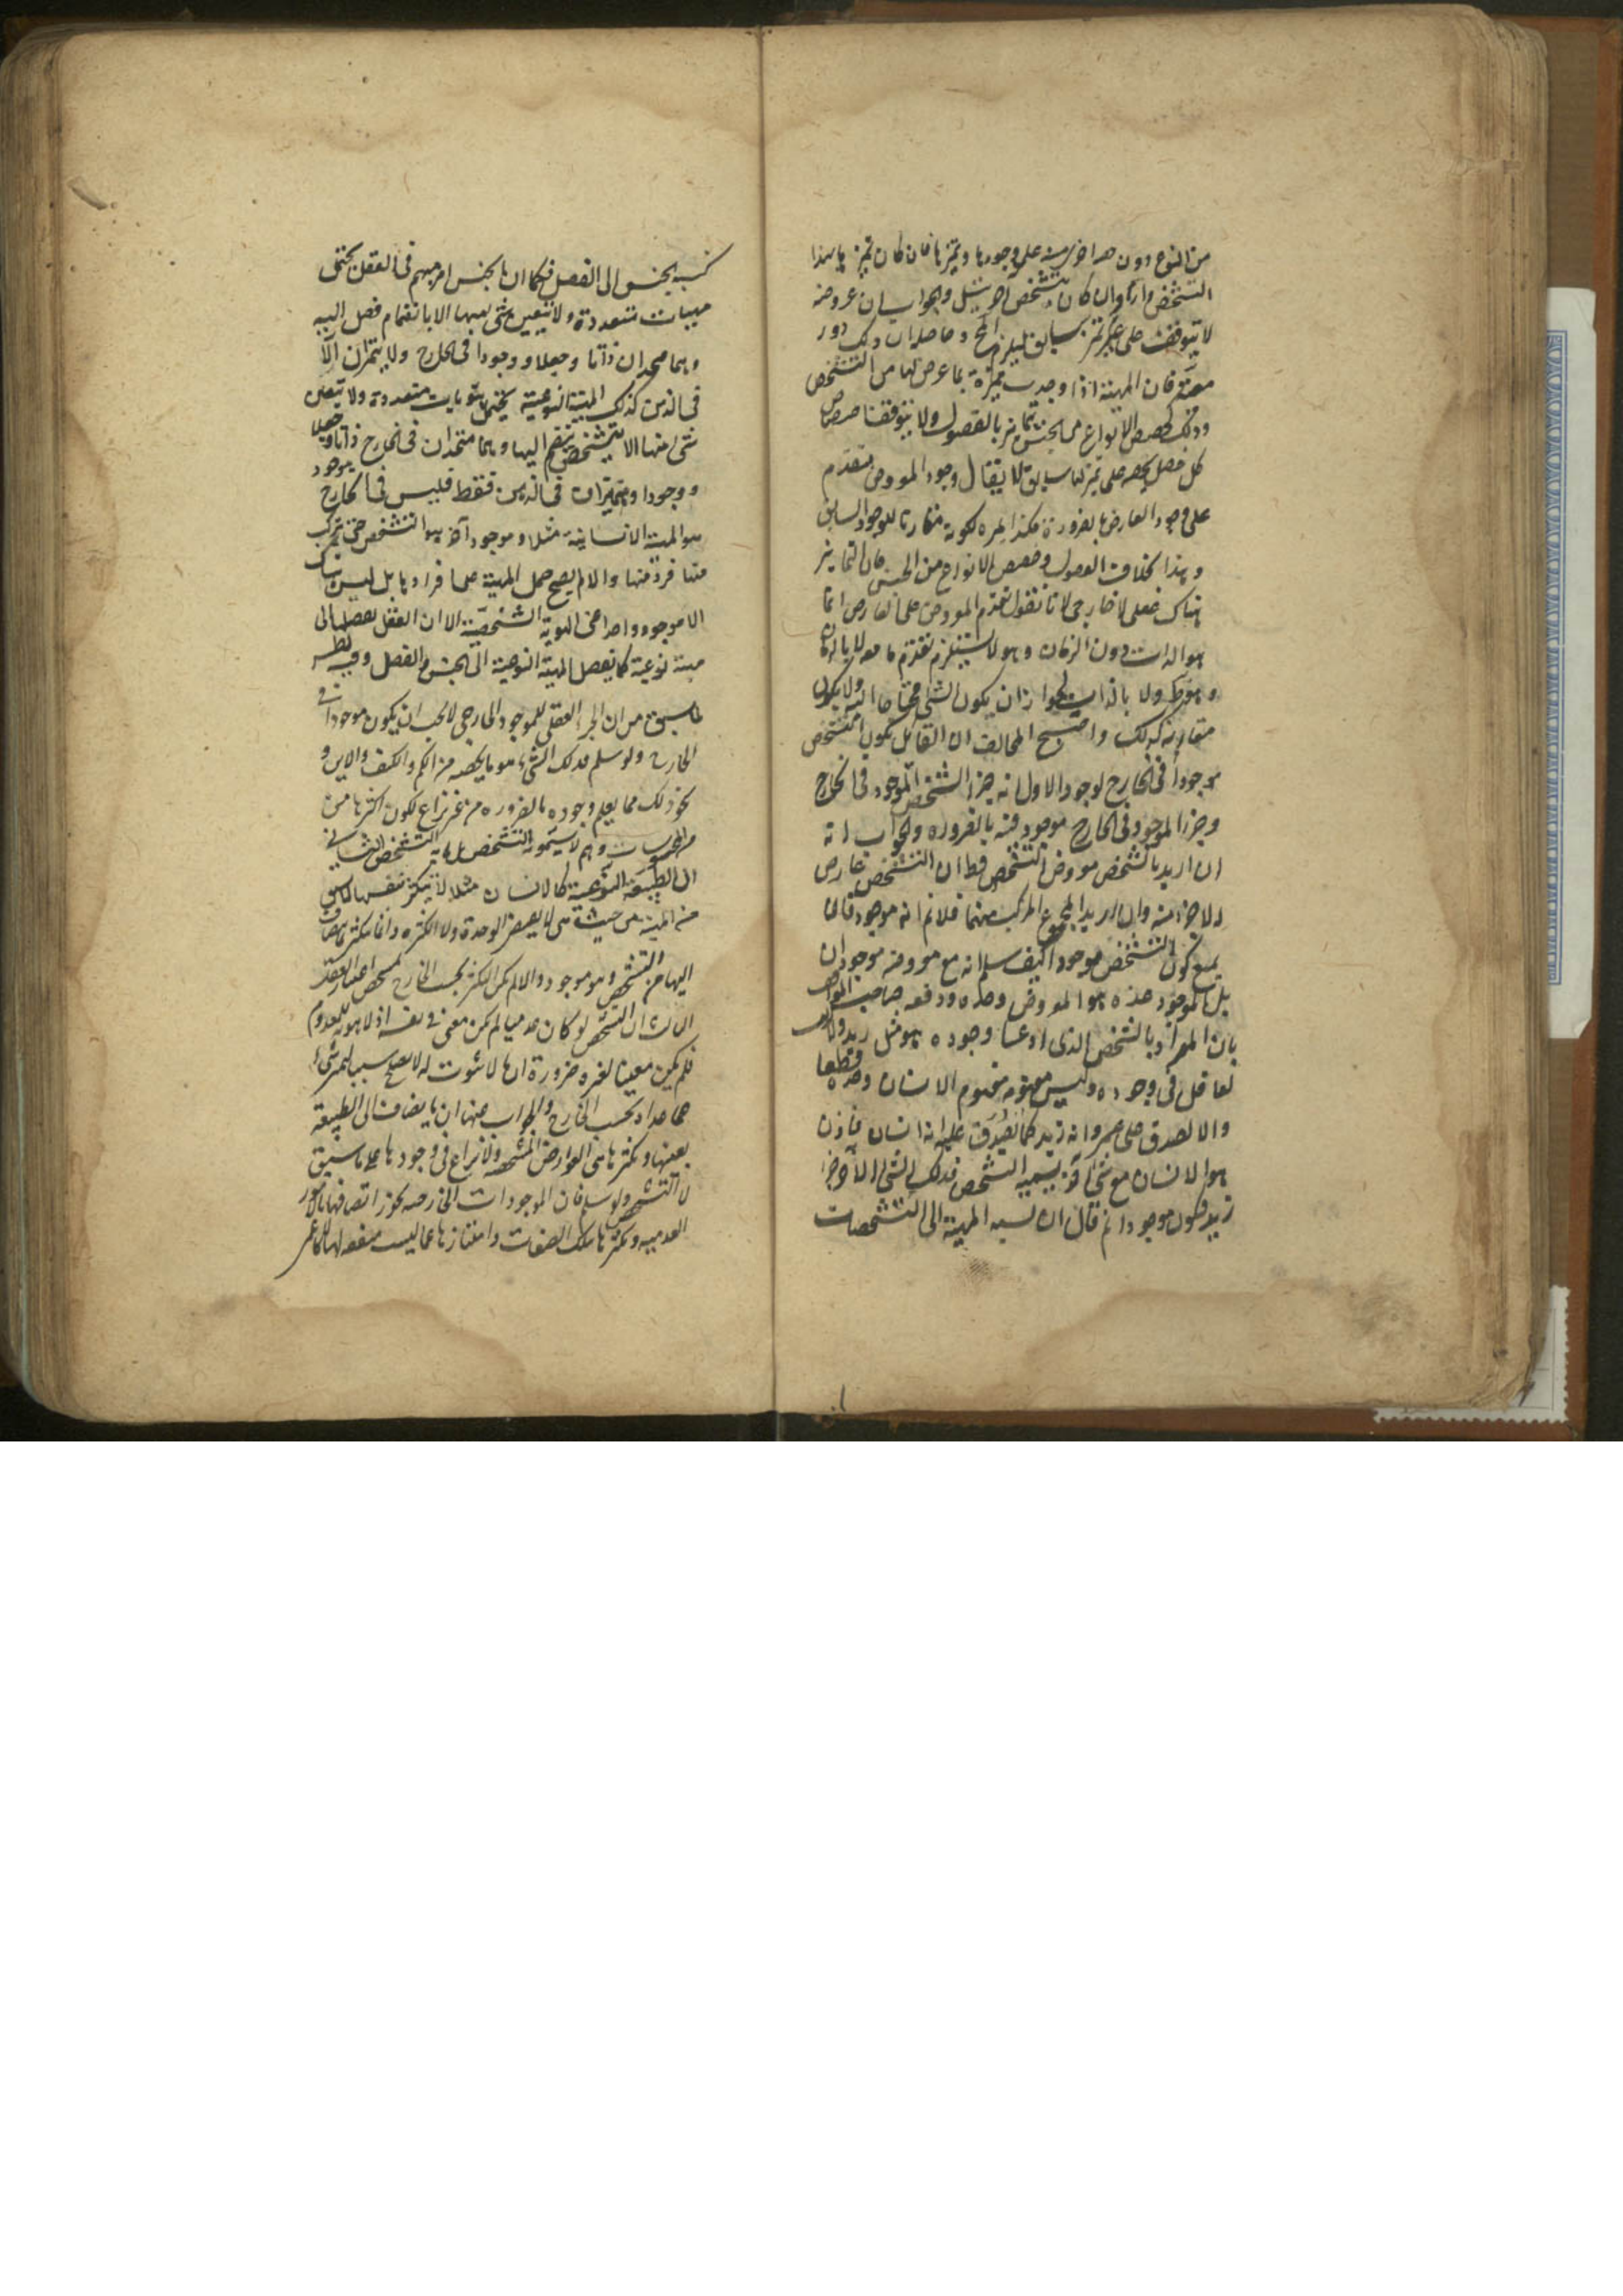 من النوع دون حصة اخرى منه على وجودها وتميزها فان كان تميزها بهذا
التشخص دار وان كان بتشخص آخر تسلسل والجواب ان عروضه
لا يتوقف على تميز سابق ليلزم المحال وحاصله ان ذلك دور
معية فان المهية اذا وجدت متميزة بما عرض لها من التشخص
وذلك كحصص الانواع من الجنس تتمايز بالفصول ولا يتوقف اختصاص
كل فصل بحصة على تميز لها سابق لا يقال وجود المعروض متقدم
على وجود العارض بالضرورة فكذا تميزه لكونه مقارنا للوجود السابق
وهذا بخلاف الفصول وحصص الانواع من الجنس فان التمايز
هناك عقلى لا خارجى لانا نقول تقدم المعروض على العارض انما
هو بالذات دون الزمان وهو لا يستلزم تقدم ما معه لا بالزمان
وهو ظ ولا بالذات لجواز ان يكون الشئ محتاجا اليه ولا يكون
مقارنه كذلك واحتج المخالف اى القائل بكون التشخص
موجودا فى الخارج لوجوه الاول انه جزء الشخص الموجود فى الخارج
وجزء الموجود فى الخارج موجود فيه بالضرورة والجواب انه
ان اريد بالشخص معروض التشخص فظ ان التشخص عارض
له لا جزء منه وان اريد المجموع المركب منهما فلا نم انه موجود فان ما
يمنع كون التشخص موجودا كيف يسلم انه مع معروضه موجودان
بل الموجود عنده هو المعروض وحده ودفعه صاحب المواقف
بان المراد بالشخص الذى ادعينا وجوده هو مثل زيد ولا شك
لعاقل فى وجوده وليس مفهومه مفهوم الانسان وحده قطعا
والا لصدق على عمرو انه زيد كما يصدق عليه انه انسان فاذن
هو الانسان مع شئ آخر نسميه التشخص فذلك الشئ الآخر جزء
زيد فيكون موجودا ثم قال ان نسبة المهية الى التشخصات
كنسبة الجنس الى الفصل فكما ان الجنس امر مبهم فى العقل يحتمل
مهيات متعددة ولا يتعين شئ منها الا بانضمام فصل اليه
وهما متحدان ذاتا وجعلا ووجودا فى الخارج ولا يتمايزان الا
فى الذهن كذلك المهية النوعية يحتمل هويات متعددة ولا يتعين
شئ منها الا بتشخص ينضم اليها وهما متحدان فى الخارج ذاتا وجعلا
ووجودا ومتمايزان فى الذهن فقط فليس فى الخارج موجود
هو المهية الانسانية مثلا وموجود آخر هو التشخص حتى يتركب
منهما فرد منها والا لم يصح حمل المهية على افرادها بل ليس هناك
الا موجود واحد اعنى الهوية الشخصية الا ان العقل يفصلها الى
مهية نوعية كما يفصل المهية النوعية الى الجنس والفصل وفيه نظر
لما سبق من ان الجزء العقلى للموجود الخارجى لا يجب ان يكون موجودا فى
الخارج ولو سلم فذلك الشئ هو ما يخصه من الكم والكيف والاين و
نحو ذلك مما يعلم وجوده بالضرورة من غير نزاع لكون اكثرها من
المحسوسات وهم لا يسمونه التشخص بل ما به التشخص الثانى
ان الطبيعة النوعية كالانسان مثلا لا يتكثر بنفسها لما سبق
من ان المهية من حيث هى لا يقتضى الوحدة ولا الكثرة وانما يتكثر بما ينضاف
اليها من التشخص وهو موجود والا لم يكن التكثر بحسب الخارج بل بمحض اعتبار العقل
الثالث ان التشخص لو كان عدميا لم يكن معينا فى نفسه اذ لا هوية للمعدوم
فلم يكن معينا لغيره ضرورة ان ما لا ثبوت له لا يصلح سببا لتميز شئ
عما عداه بحسب الخارج والجواب عنهما ان ما ينضاف الى الطبيعة
يعينها ويكثرها هى العوارض المشخصة ولا نزاع فى وجودها على ما سبق
لا التشخص ولو سلم فان الموجودات الخارجية يجوز اتصافها بالامور
العدمية وتكثرها بتلك الصفات وامتيازها عما ليست متصفة بها كالاعمى